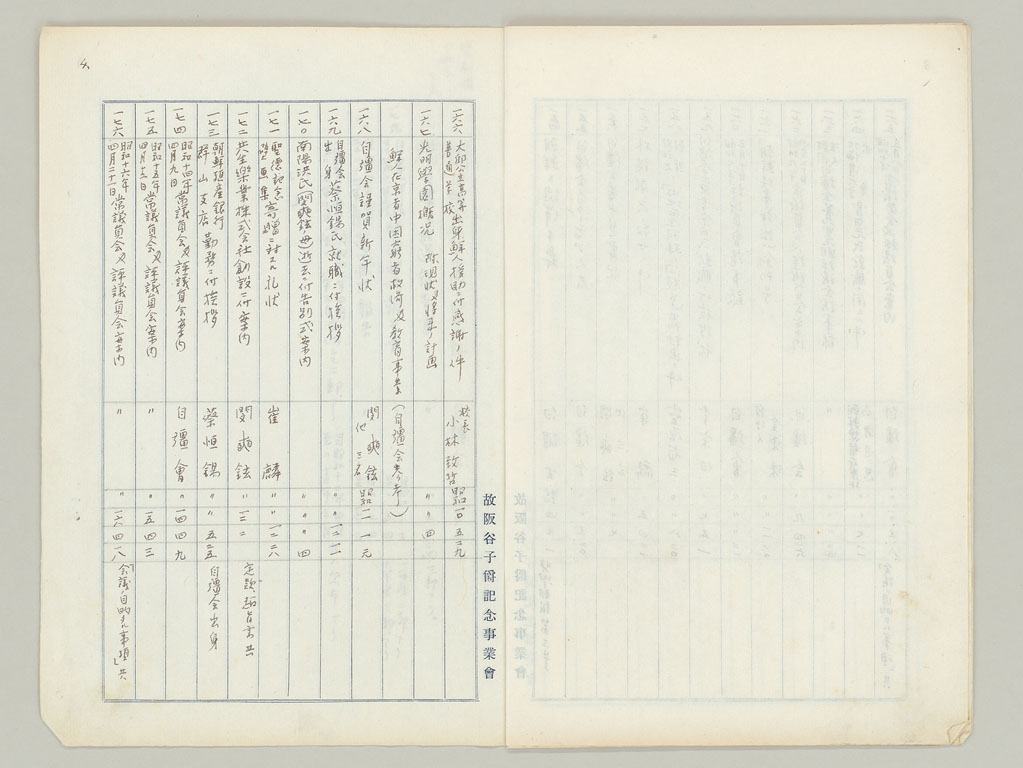 4
一六六 大邱公立高等普通学校出身鮮人援助ニ付感謝ノ件 校長 小林致哲 昭一〇 五 二九
一六七 光明學園概況 附現状及将来ノ計画 〃 〃 四
鮮人在京者中困窮者救済及教育事業 (自彊会参考)
一六八 自彊会謹賀新年状 閔奭鉉 他三名 昭一一 一 元
一六九 自彊会出身蔡恒錫氏就職ニ付挨拶 〃 一二 一一
一七〇 南陽洪氏(閔奭鉉母)逝去ニ付告別式案内 〃 〃 四
一七一 聖徳記念絵画集寄贈ニ対スル礼状 崔麟 〃 一二 二八
一七二 共生樂業株式会社創設ニ付案内 閔奭鉉 〃 一三 二 定款、趣旨書共
一七三 朝鮮殖産銀行群山支店勤務ニ付挨拶 蔡恒錫 〃 五 二五 自彊会出身
一七四 昭和十四年四月九日常議員会及評議員会案内 自彊會 〃 一四 四 九
一七五 昭和十五年四月十三日常議員会及評議員会案内 〃 〃 一五 四 三
一七六 昭和十六年四月二十一日常議員会及評議員会案内 〃 〃 一六 四 一八 「会議ノ目的タル事項」共
故阪谷子爵記念事業會